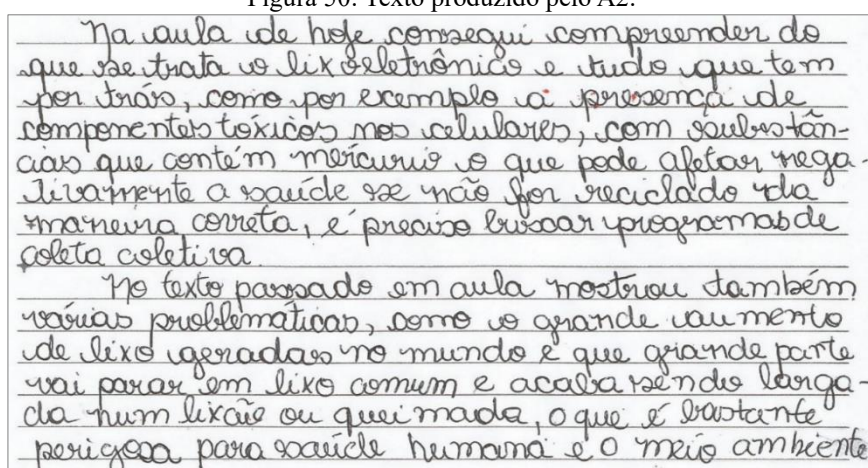 Figura 50: Texto produzido pelo A2.
Na aula de hoje consegui compreender do
que se trata o lixo eletrônico e tudo que tem
por trás, como por exemplo a presença de
componentes tóxicos nos celulares, com substân-
cias que contém mercurio o que pode afetar nega-
tivamente a saúde se não for reciclado da
maneira correta, é preciso buscar programas de
coleta coletiva.
No texto passado em aula mostrou também
várias problemáticas, como o grande aumento
de lixo geradas no mundo e que grande parte
vai parar em lixo comum e acaba sendo larga-
da num lixão ou queimada, o que é bastante
perigosa para saúde humana e o meio ambiente